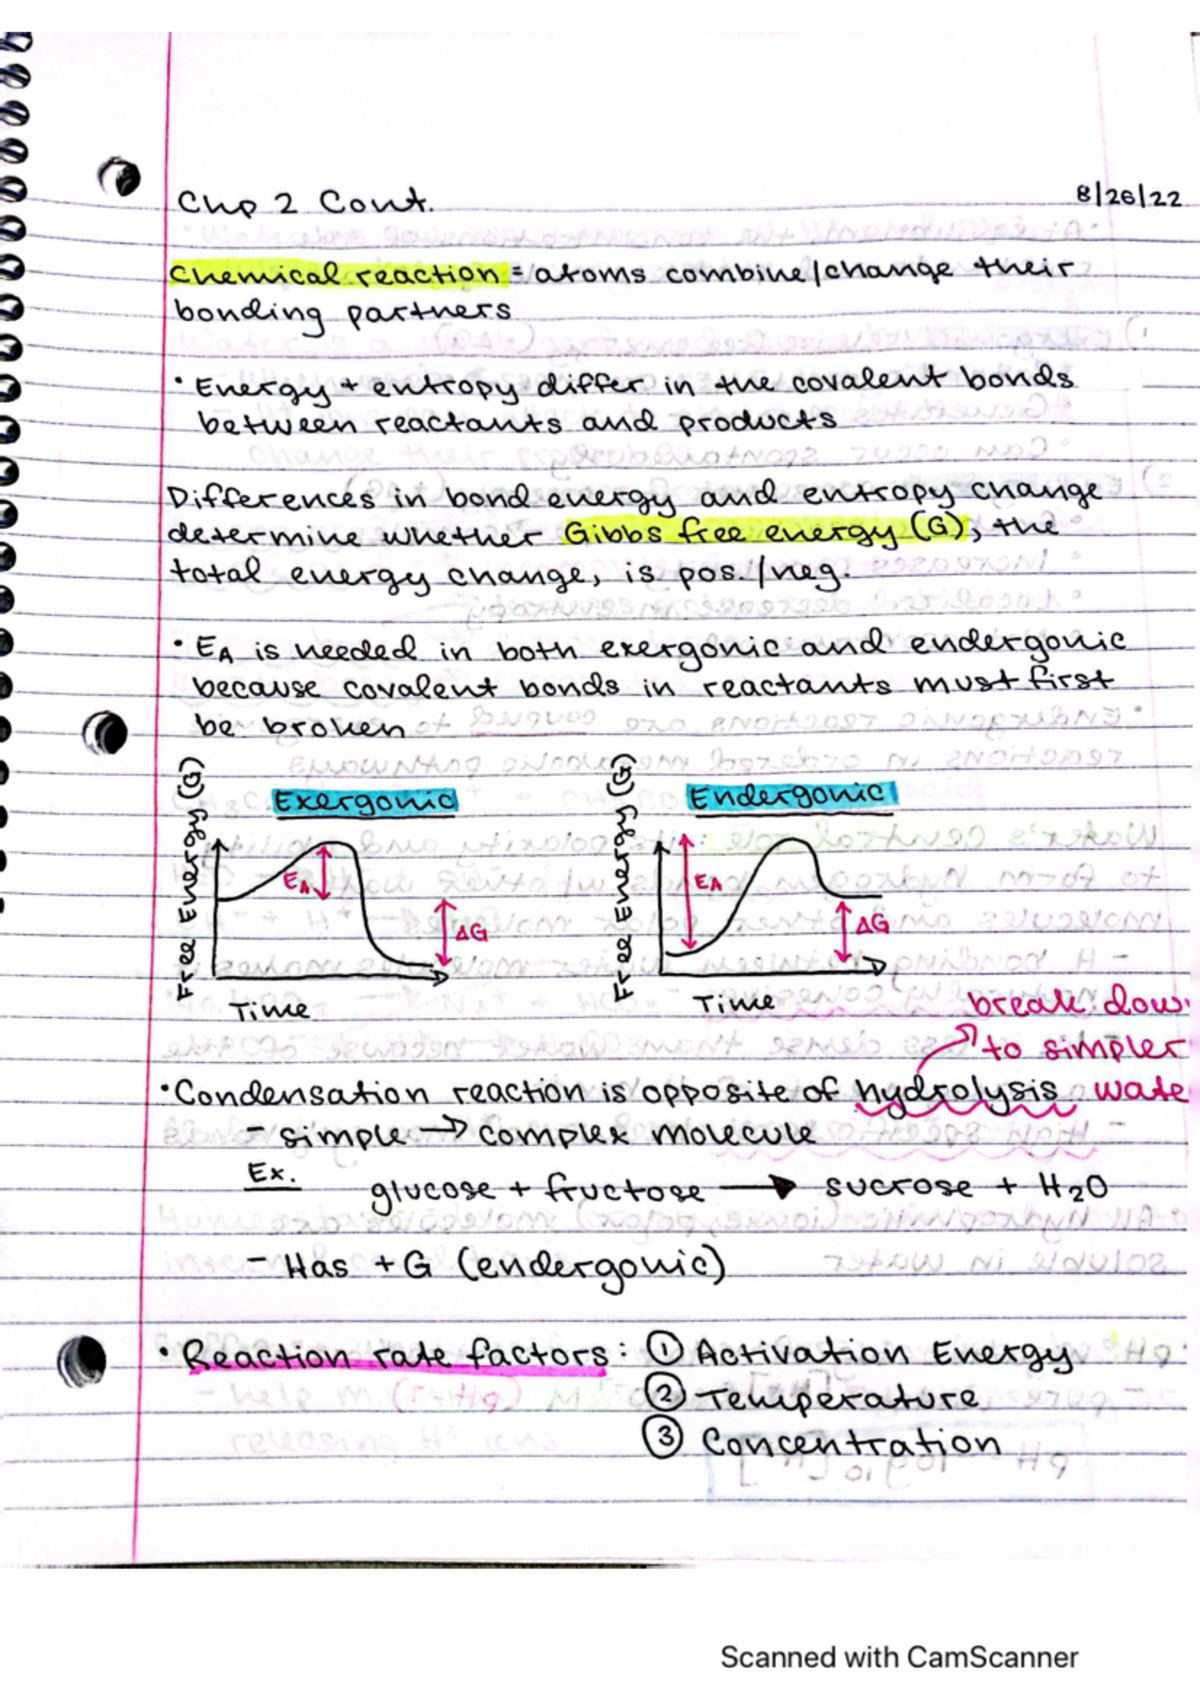 Chp 2 Cont. 8/26/22
Chemical reaction = atoms combine/change their
bonding partners
• Energy + entropy differ in the covalent bonds
between reactants and products
Differences in bond energy and entropy change
determine whether Gibbs free energy (G), the
total energy change, is pos./neg.
• EA is needed in both exergonic and endergonic
because covalent bonds in reactants must first
be broken
Exergonic
Free Energy (G)
EA
ΔG
Time
Endergonic
Free Energy (G)
EA
ΔG
Time
break dow
to simpler
• Condensation reaction is opposite of hydrolysis wate
- simple → complex molecule
Ex. glucose + fructose → sucrose + H2O
- Has +G (endergonic)
• Reaction rate factors: ① Activation Energy
② Temperature
③ Concentration
Scanned with CamScanner